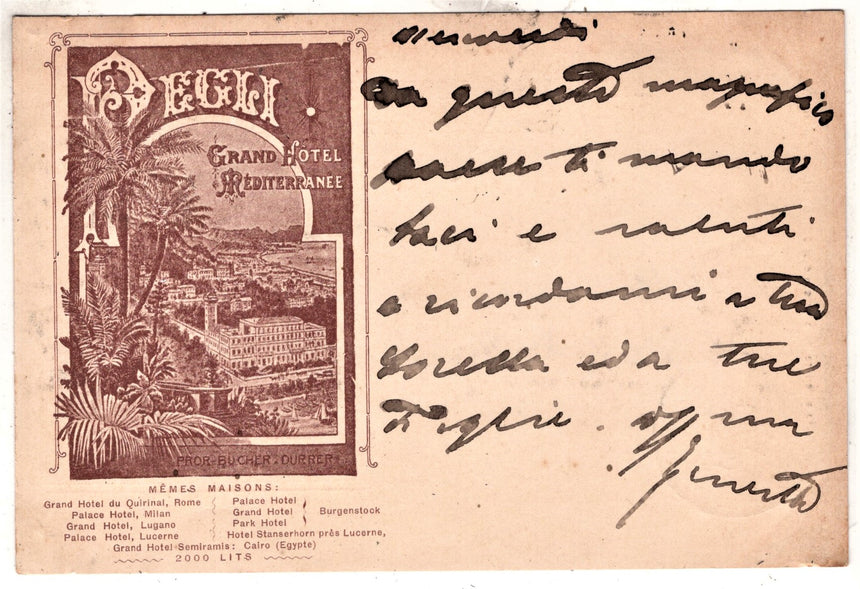 PEGLI
GRAND HOTEL
MÉDITERRANÉE
PROP. BUCHER-DURRER
MÊMES MAISONS:
Grand Hotel du Quirinal, Rome
Palace Hotel, Milan
Grand Hotel, Lugano
Palace Hotel, Lucerne
Palace Hotel
Grand Hotel
Park Hotel
Burgenstock
Hotel Stanserhorn près Lucerne,
Grand Hotel Semiramis: Cairo (Egypte)
2000 LITS
Mercoledi
Da questo magnifico
paese ti mando
baci e saluti
e ricordami a tua
Sorella ed a tue
Figlie.